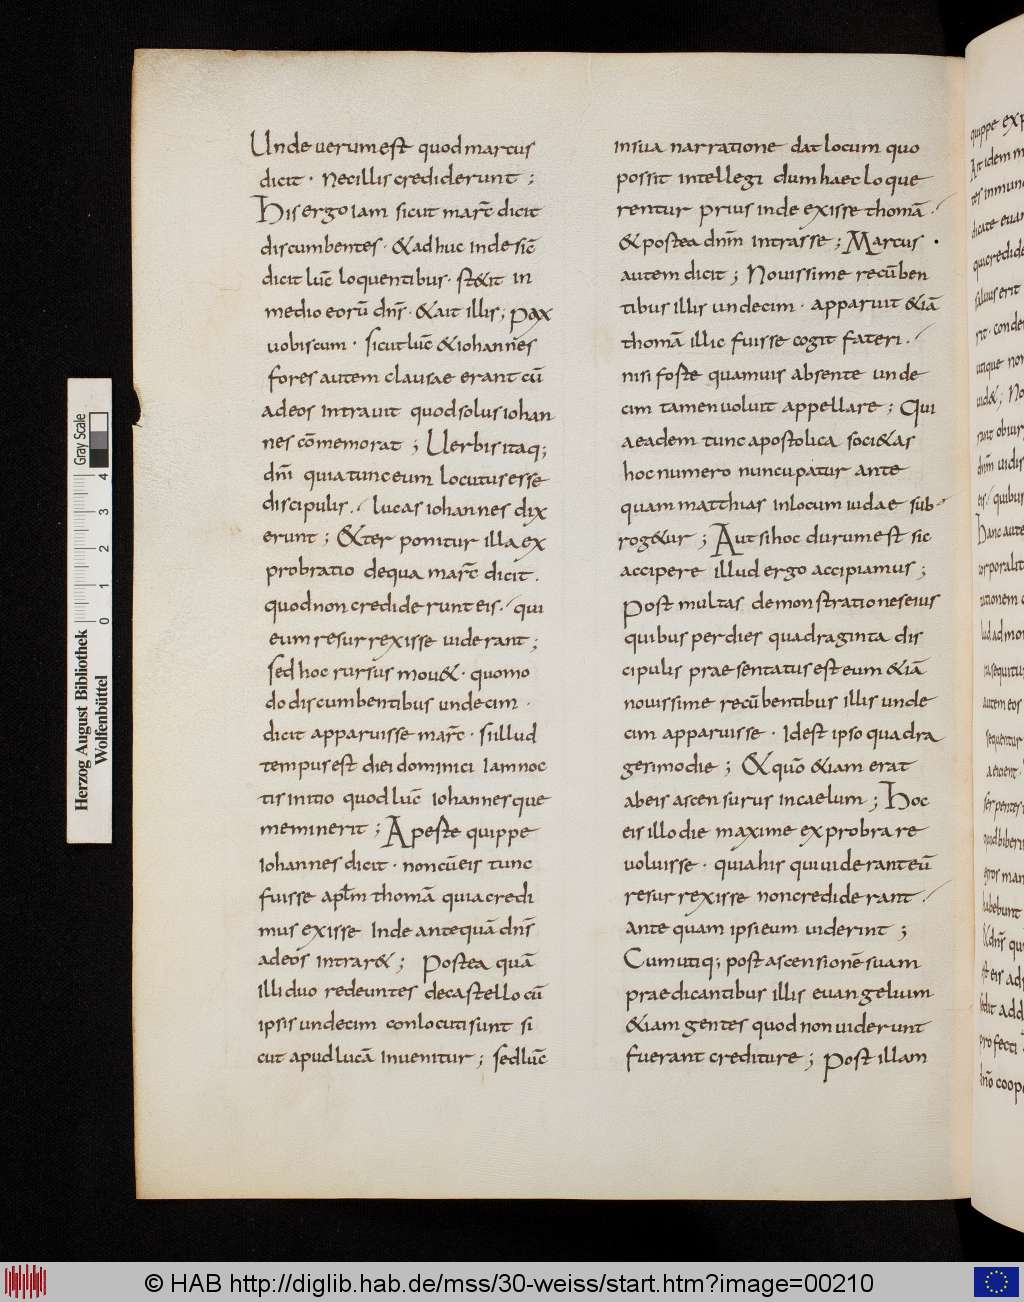 Unde uerum est quod marcus
dicit · Nec illis crediderunt ;
His ergo iam sicut marc̄ dicit
discumbentes · & adhuc inde sic̄
dicit luc̄ loquentibus · st&it in
medio eorū dn̄s · & ait illis ; pax
uobiscum · sicut luc̄ & iohannes
fores autem clausae erant cū
ad eos intrauit quod solus iohan
nes cōmemorat ; Uerbis itaq;
dn̄i quia tunc eum locutus esse
discipulis . / lucas iohannes dix
erunt ; & ter ponitur illa ex
probratio de qua marc̄ dicit .
quod non crediderunt eis . / qui
eum resurrexisse uiderant ;
sed hoc rursus mou& · quomo
do discumbentibus undecim ·
dicit apparuisse marc̄ · si illud
tempus est diei dominici Iam noc
tis initio quod luc̄ Iohannesque
meminerit ; Apeste quippe
Iohannes dicit · non cū eis tunc
fuisse apl̄m thomā quia credi
mus exisse Inde antequā dn̄s
ad eos intrar& ; Postea quā
illi duo redeuntes de castello cū
ipsis undecim conlocuti sunt si
cut apud lucā Inuenitur ; sed luc̄
in sua narratione dat locum quo
possit intellegi dum haec loque
rentur prius inde exisse thomā . /
& postea dn̄m intrasse ; Marcus ·
autem dicit ; Nouissime recūben
tibus illis undecim · apparuit &iā
thomā illic fuisse cogit fateri . /
nisi foste quamuis absente unde
cim tamen uoluit appellare ; Qui
a eadem tunc apostolica soci&as
hoc numero nuncupatur ante
quam matthias in locum iudae sub
rog&ur ; Aut si hoc durum est sic
accipere illud ergo accipiamus ;
Post multas demonstrationes eius
quibus per dies quadraginta dis
cipulis praesentatus est eum &iā
nouissime recūbentibus illis unde
cim apparuisse · Id est ipso quadra
gesimo die ; & quō &iam erat
ab eis ascensurus in caelum ; Hoc
eis illo die maxime exprobrare
uoluisse · quia his qui uiderant eū
resurrexisse non crediderant . /
ante quam ipsi eum uiderint ;
Cum utiq; post ascensionē suam
praedicantibus illis euangelium
&iam gentes quod non uiderunt
fuerant crediture ; post illam
Herzog August Bibliothek
Wolfenbüttel
0 1 2 3 4
Gray Scale
© HAB http://diglib.hab.de/mss/30-weiss/start.htm?image=00210